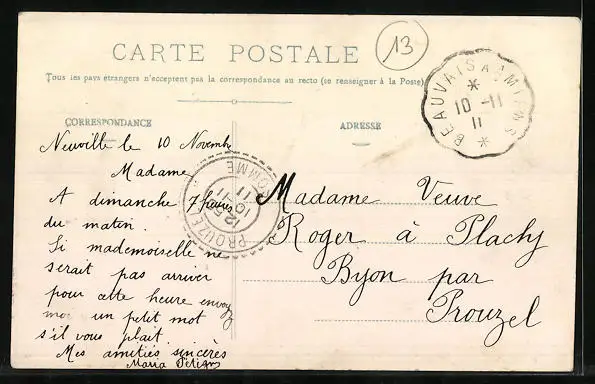 CARTE POSTALE
13
Tous les pays étrangers n'acceptent pas la correspondance au recto (se renseigner à la Poste)
CORRESPONDANCE
ADRESSE
BEAUVAIS A AMIENS
10-11
11
Neuville le 10 Novemb
Madame
A dimanche 7 heures
du matin.
Si mademoiselle ne
serait pas arriver
pour cette heure envoyz
moi un petit mot
s'il vous plait.
Mes amitiés sincères
Maria
PROUZEL SOMME
10
11
Madame Veuve
Roger à Plachy
Byon par
Prouzel